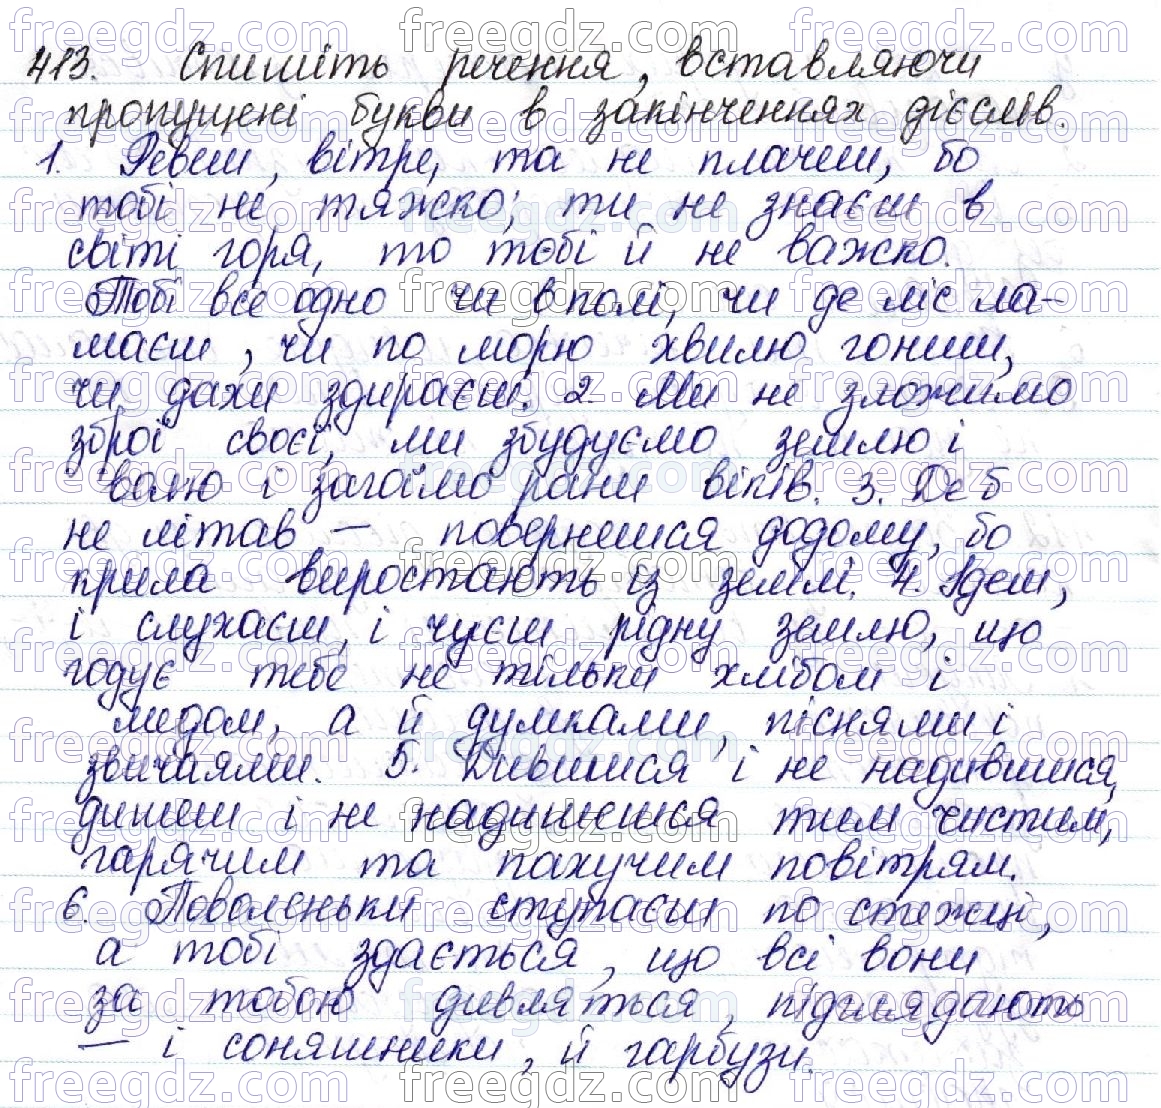 413. Спишіть речення, вставляючи
пропущені букви в закінченнях дієслів.
1. Ревеш, вітре, та не плачеш, бо
тобі не тяжко; ти не знаєш в
світі горя, то тобі й не важко.
Тобі все одно чи в полі, чи де ліс ла-
маєш, чи по морю хвилю гониш,
чи дахи здираєш. 2. Ми не зложимо
зброї своєї, ми збудуємо землю і
волю і загоїмо рани віків. 3. Де б
не літав — повернешся додому, бо
крила виростають із землі. 4. Ідеш,
і слухаєш, і чуєш рідну землю, що
годує тебе не тільки хлібом і
медом, а й думками, піснями і
звичаями. 5. Дивишся і не надивишся,
дишеш і не надишешся тим чистим,
гарячим та пахучим повітрям.
6. Поволеньки ступаєш по стежці,
а тобі здається, що всі вони
за тобою дивляться, підглядають
— і соняшники, й гарбузи.
freegdz.com